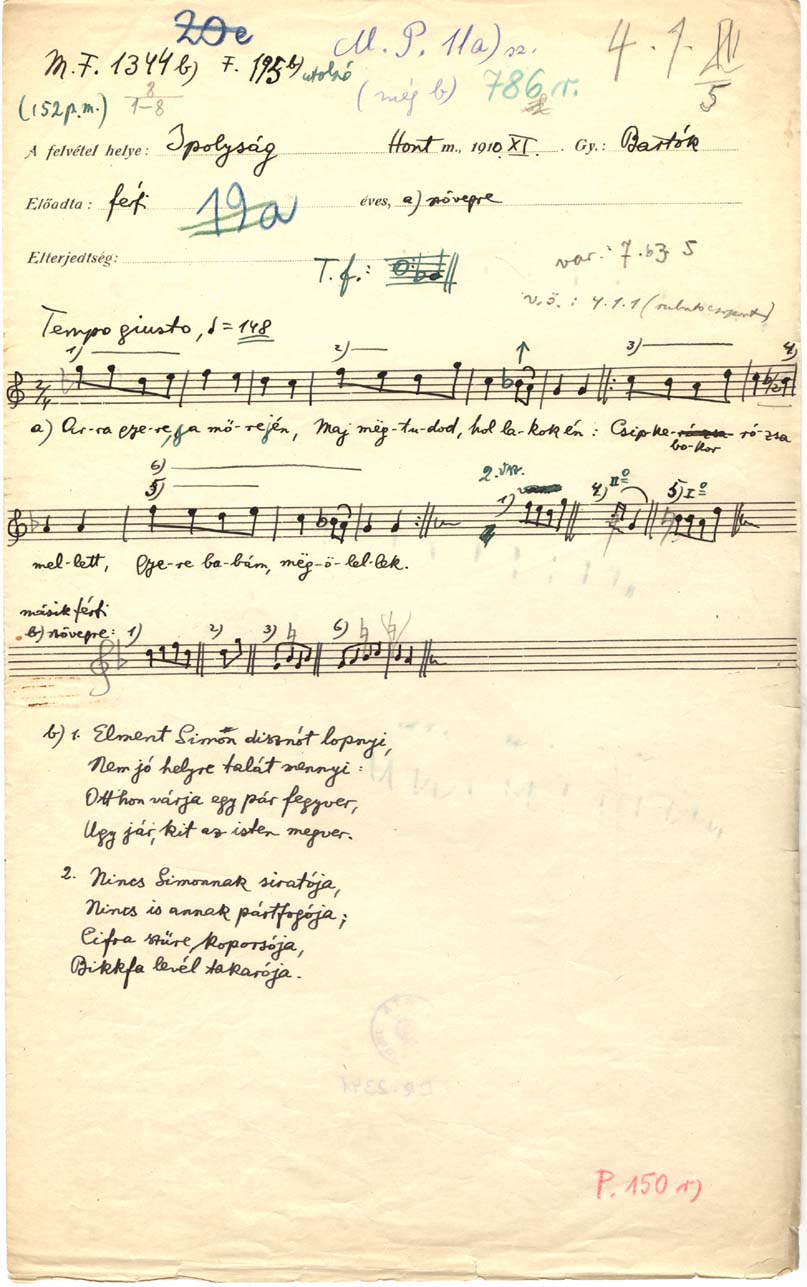 20e
M.F. 1344 b) F. 195 b) utolsó
M. P. 11a) sz.
(még b) 786 sz.
4. 1. III
5
(152 p.m.) 8
1-8
A felvétel helye: Ipolyság Hont m., 1910. XI. Gy.: Bartók
Előadta: férfi 19a éves, a) szövegre
Elterjedtség:
T. f.:
var.: 7. b3 5
v.ö.: 4.1.1
Tempo giusto, = 148
1) 2) 3) 4)
a) Ar-ra gye-re, a mő-re jén, Maj mëg-tu-dod, hol la-kok én: Csip-ke-ró-zsa ró-zsa
bo-kor
6)
5) 2. vsz. 1) 4) II° 5) I°
mel-lett, Gye-re ba-bám, mëg-ö-lel-lek.
másik férfi
b) szövegre: 1) 2) 3) 6)
b) 1. Elment Simon disznót lopnyi,
Nem jó helyre talát mennyi:
Otthon várja egy pár fegyver,
Ugy jár, kit az isten megver.
2. Nincs Simonnak siratója,
Nincs is annak pártfogója;
Cifra szűre, koporsója,
Bikkfa levél takarója.
P. 150 sz)